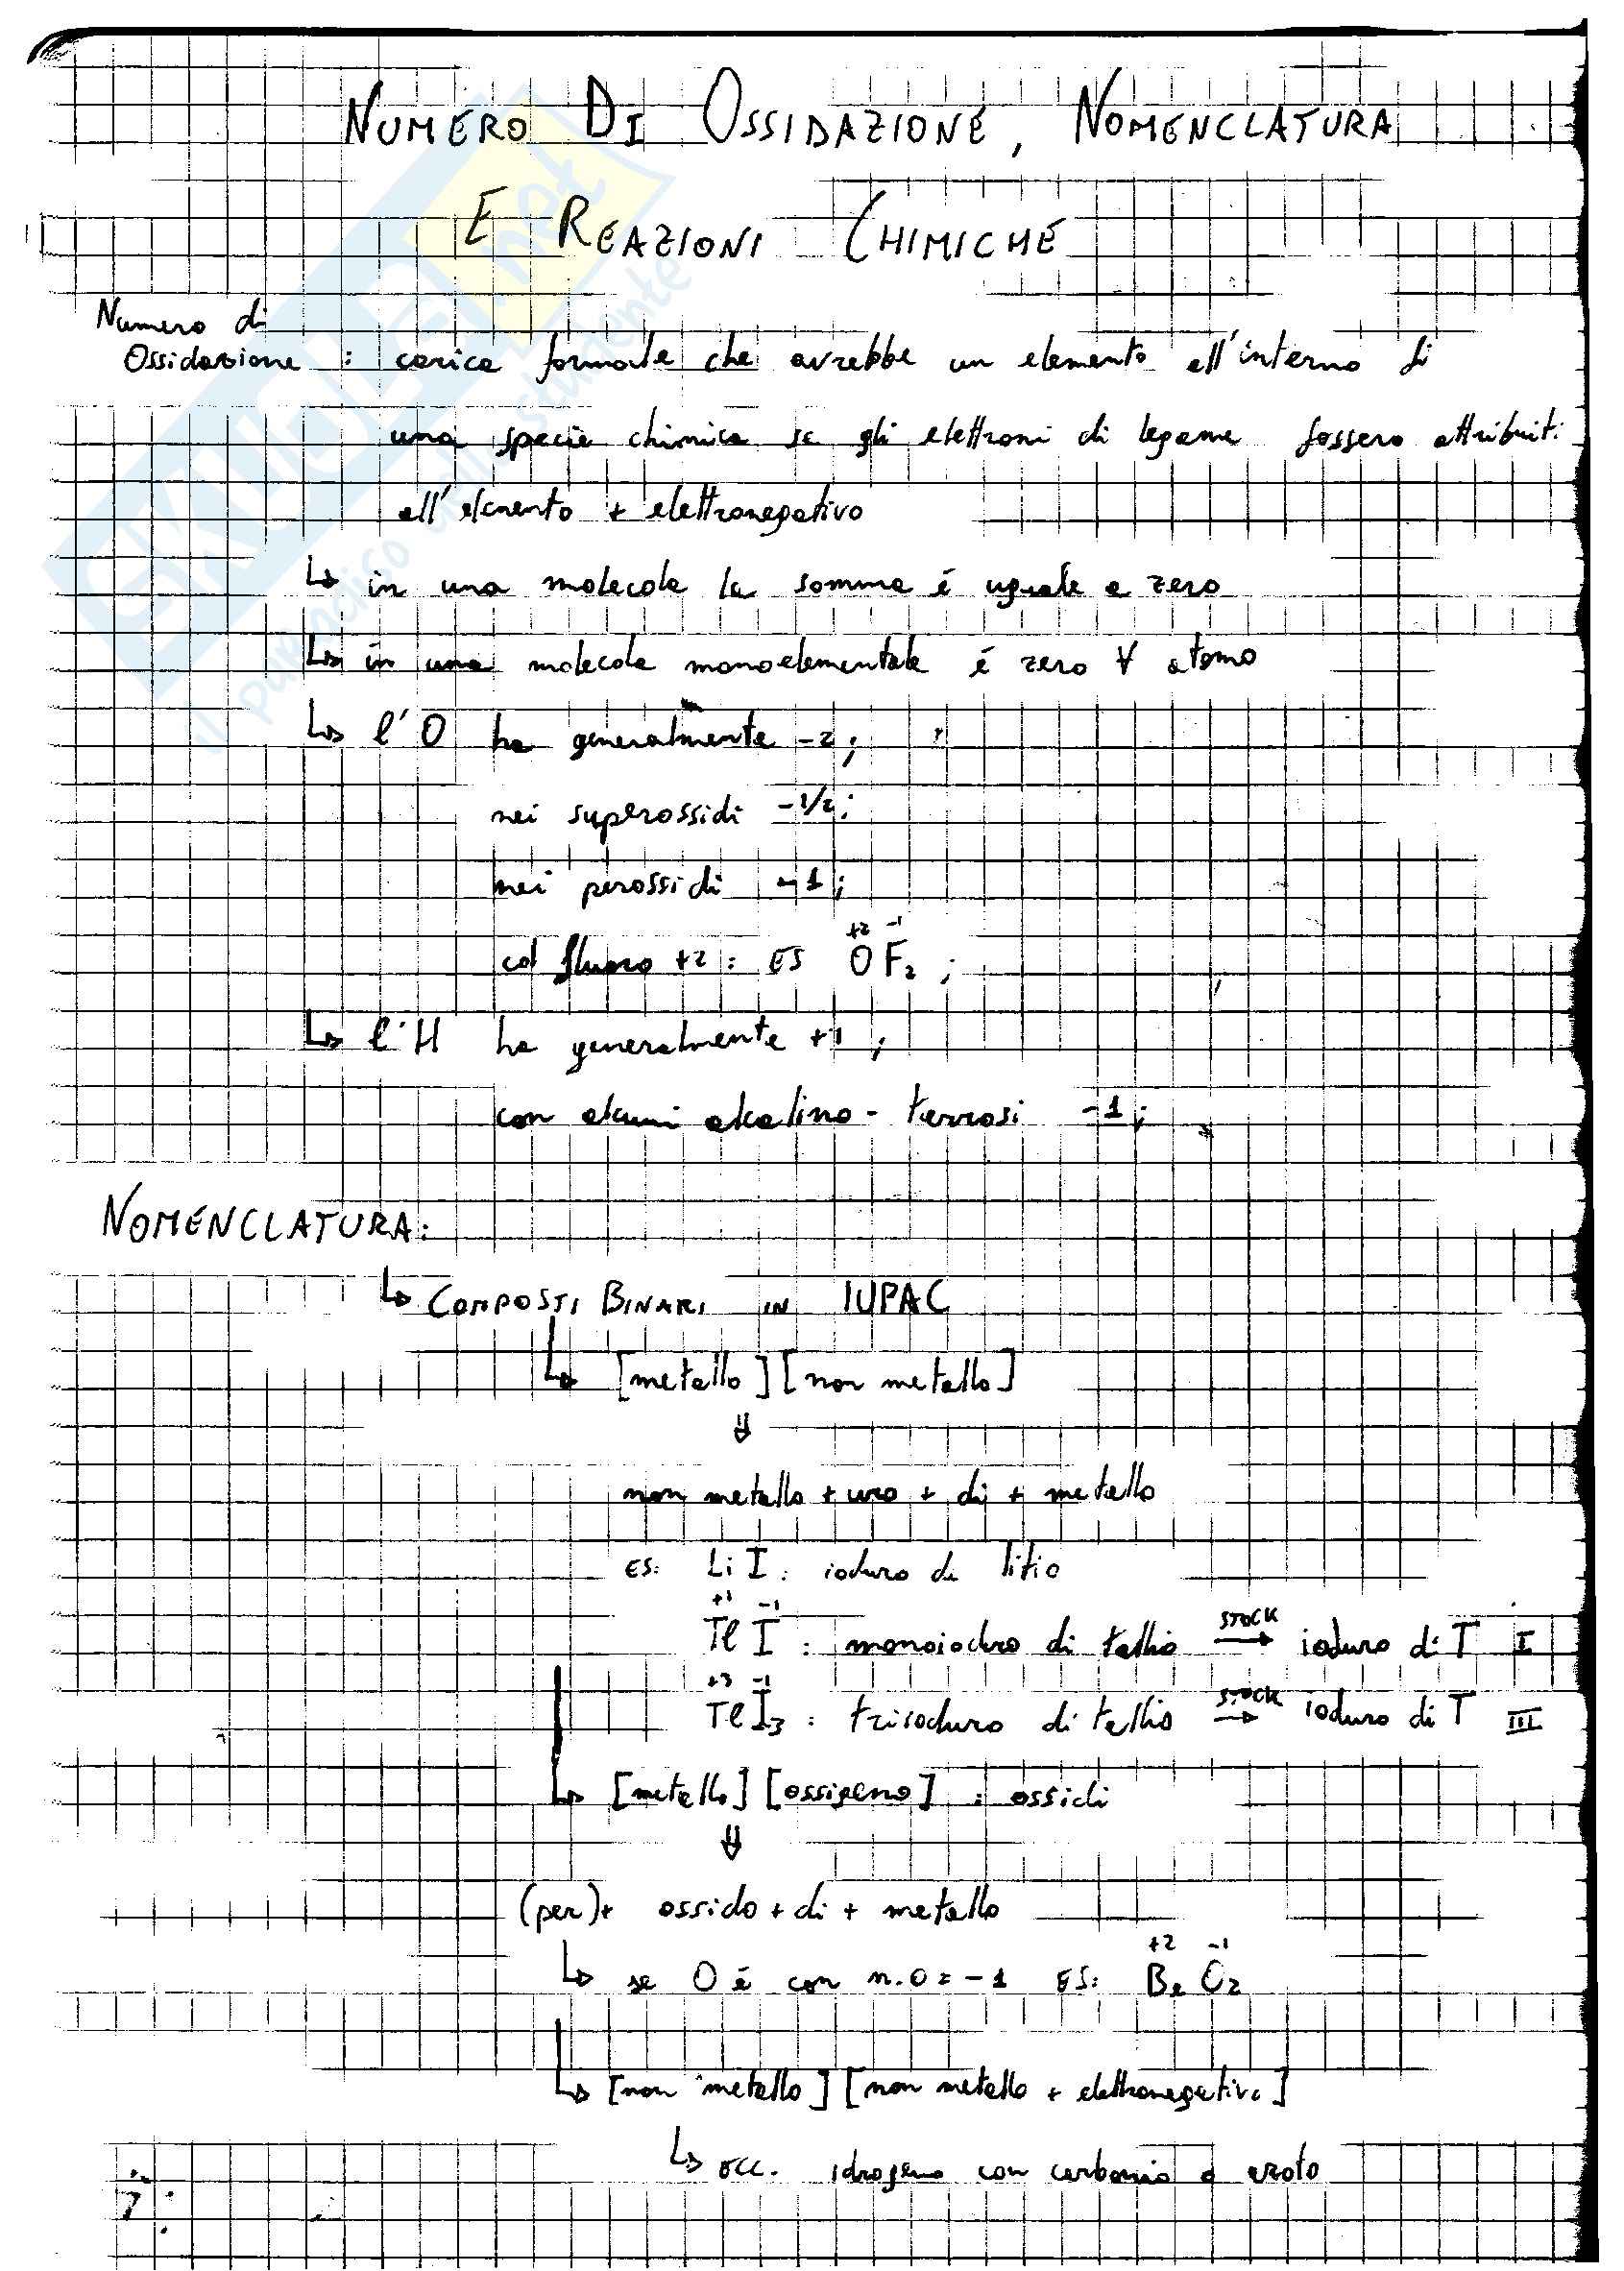 NUMERO DI OSSIDAZIONE, NOMENCLATURA
E REAZIONI CHIMICHE
Numero di
Ossidazione : carica formale che avrebbe un elemento all'interno di
una specie chimica se gli elettroni di legame fossero attribuiti
all'elemento + elettronegativo
↳ in una molecola la somma é uguale a zero
↳ in una molecola monoelementale é zero ∀ atomo
↳ l'O ha generalmente -2;
nei superossidi -1/2;
nei perossidi -1;
col fluoro +2: ES O F2 ;
+2 -1
↳ l'H ha generalmente +1 ;
con alcuni alcalino-terrosi -1;
NOMENCLATURA:
↳ COMPOSTI BINARI IN IUPAC
↳ [metallo][non metallo]
⇓
non metallo + uro + di + metallo
ES: Li I : ioduro di litio
+1 -1
Tl I : monoioduro di tallio STOCK → ioduro di T I
+3 -1
Tl I3 : triioduro di tallio STOCK → ioduro di T III
↳ [metallo] [ossigeno] : ossidi
⇓
(per)+ ossido + di + metallo
+2 -1
↳ se O é con n.O = -1 ES: Be O2
↳ [non metallo] [non metallo + elettronegativo]
↳ ecc. idrogeno con carbonio o azoto